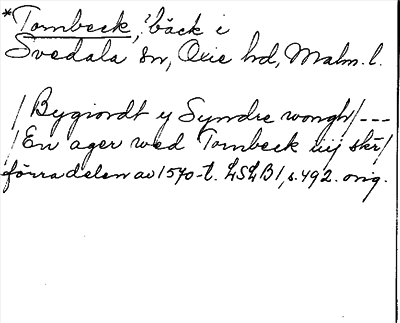 *Tombeck, ?bäck i
Svedala sn, Oxie hd, Malm. l.
/Bygiordt y Syndre wongh/---
/En ager wed Tombeck iiij skr/
förra delen av 1570-t. LSLB1, s. 492. orig.